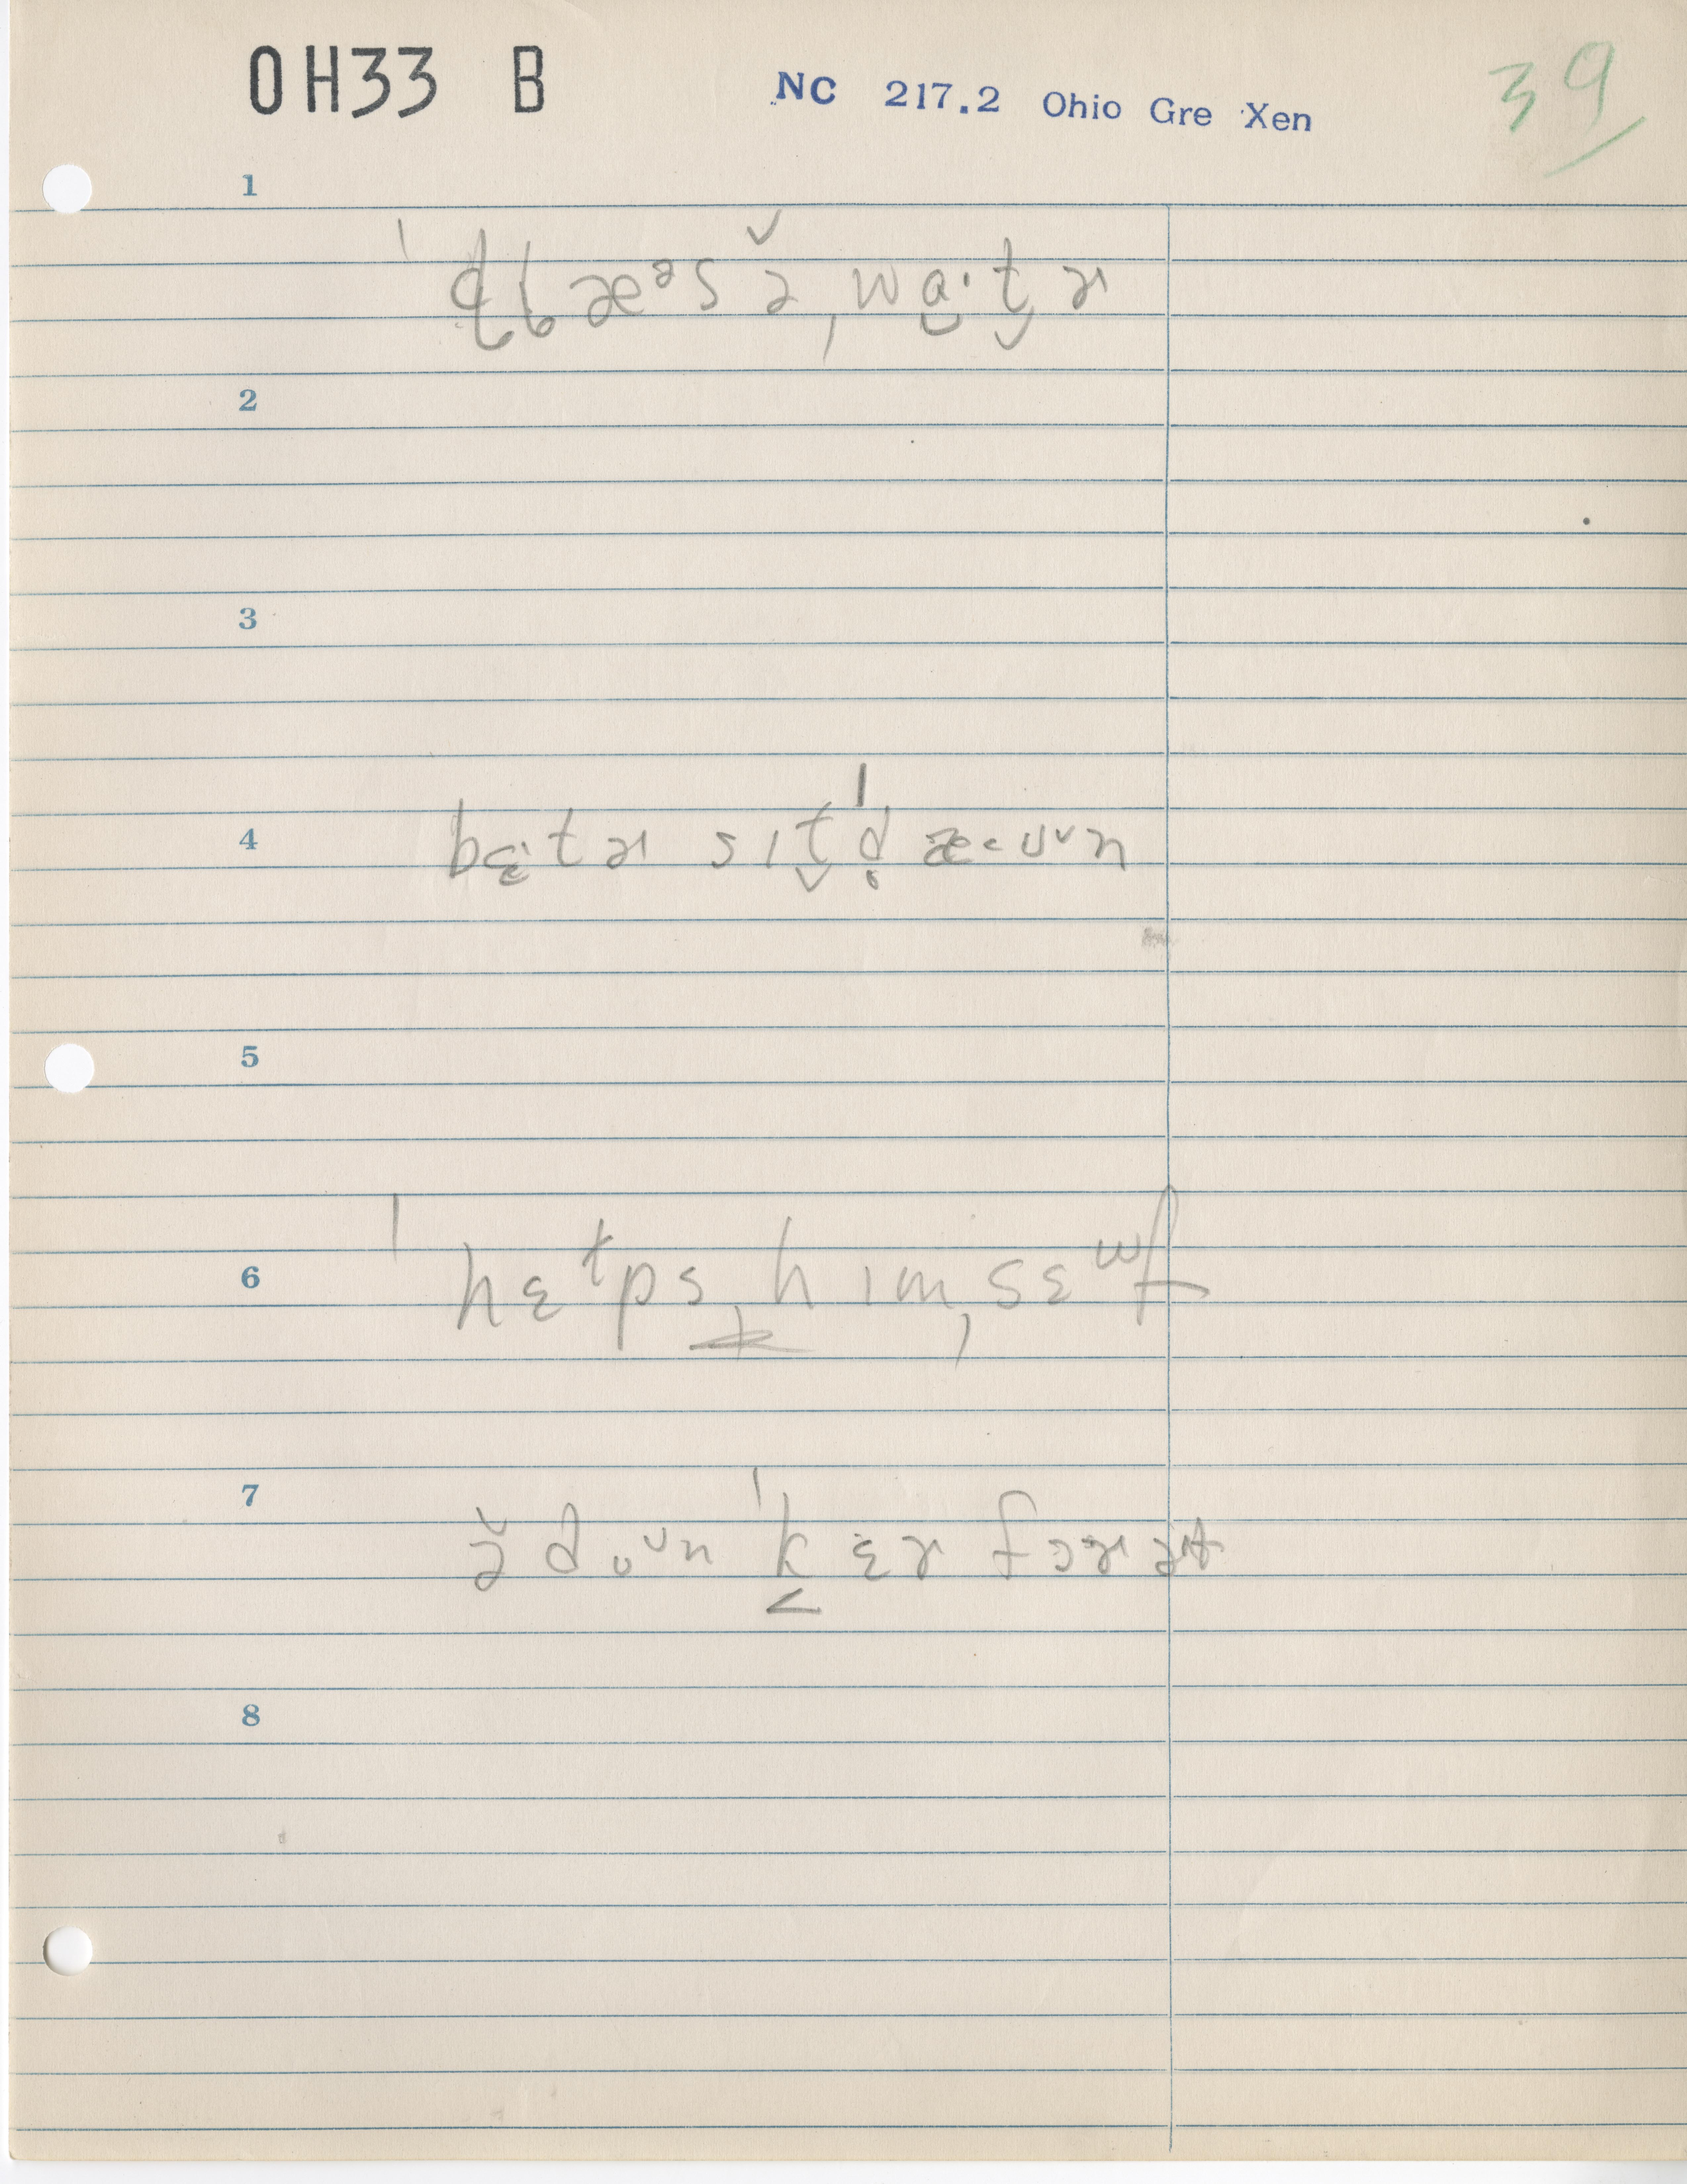 OH33 B
NC 217.2 Ohio Gre Xen
39
1
ˈgl̥æᵊsə̆ˌwɑ̬·t̬ɚ
2
3
4
bɛ̜·tɚ sɪt̬ˈd̥æ·ʊ̆n
5
6
ˈhɛɫps hɪmˌsɛʷf
7
ə̆doᶷn ˈk̬ɛɚ fɔɚ ət
8